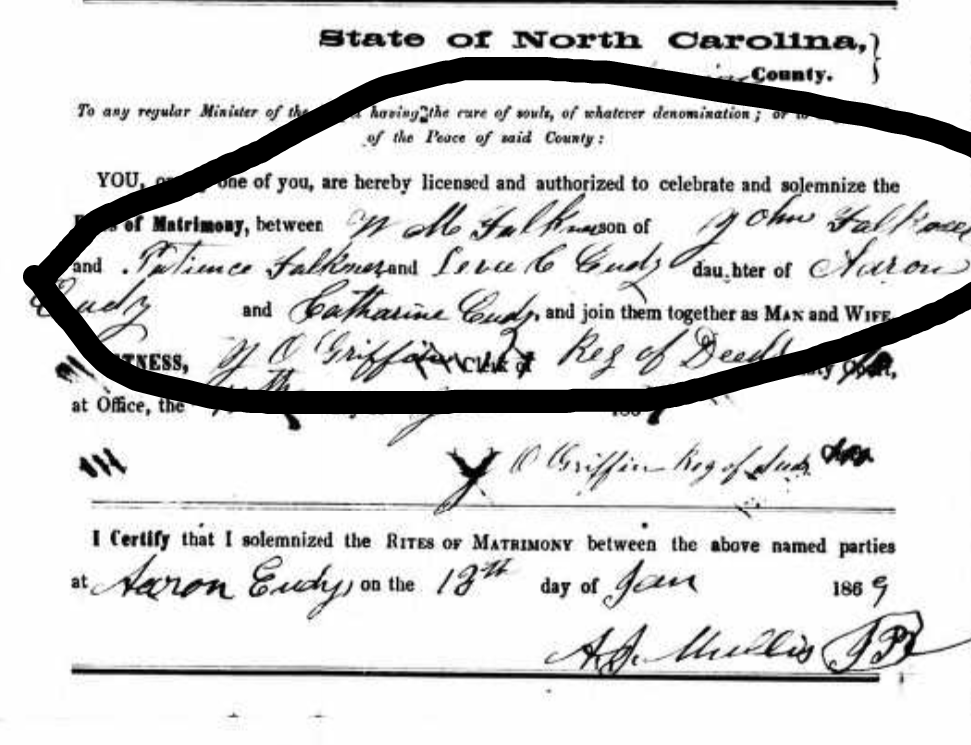 State of North Carolina,
County.
To any regular Minister of the having the cure of souls, of whatever denomination; or to
of the Peace of said County:
YOU, one of you, are hereby licensed and authorized to celebrate and solemnize the
of Matrimony, between W M Falkner son of John Falkner
and Patience Falkner and C Eudy daughter of Aaron
Eudy and Catharine Eudy, and join them together as MAN and WIFE.
Griffin Clerk of Reg of Deeds
at Office, the 186
O Griffin Reg of
I Certify that I solemnized the RITES OF MATRIMONY between the above named parties
at Aaron Eudys on the 13th day of Jan 1869
A. J. Mullis JP